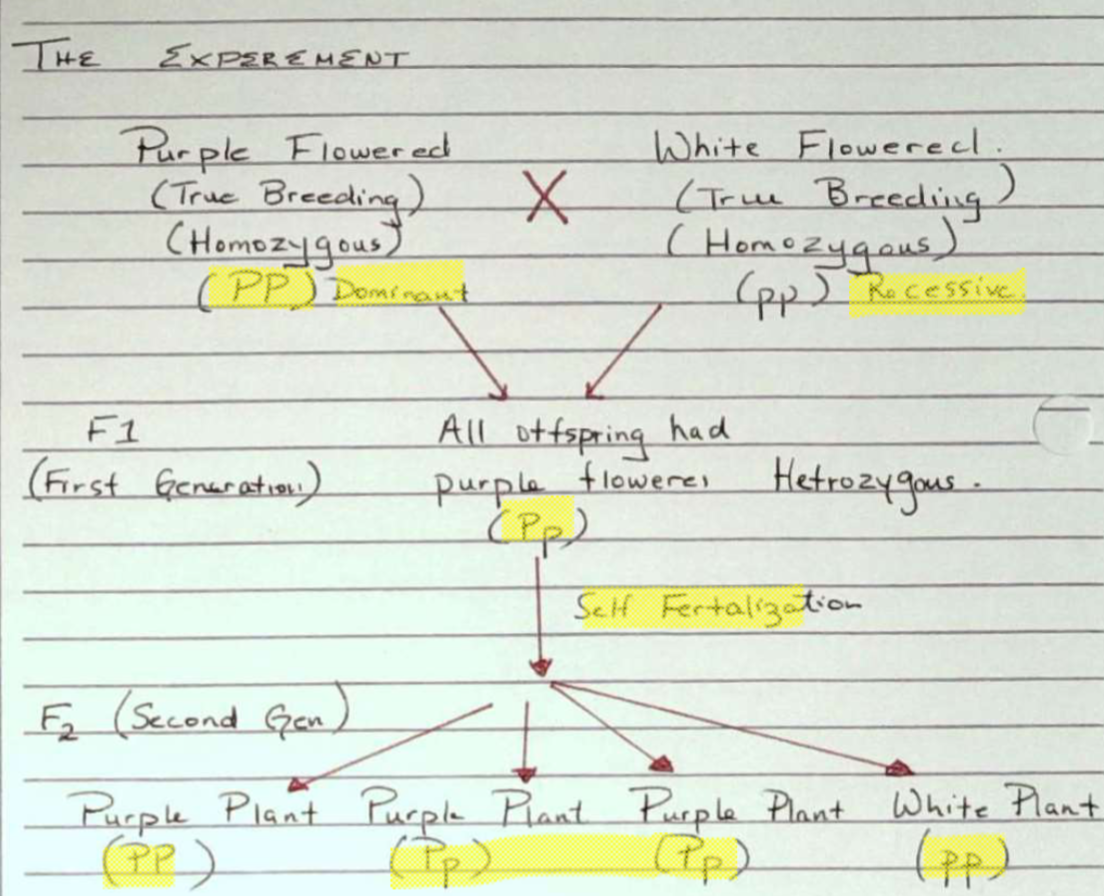 THE EXPEREMENT
Purple Flowered
(True Breeding)
(Homozygous)
(PP) Dominant
X
White Flowered.
(True Breeding)
(Homozygous)
(pp) Recessive
F1
(First Generation)
All offspring had
purple flowers Hetrozygous.
(Pp)
Self Fertalization
F2 (Second Gen)
Purple Plant Purple Plant Purple Plant White Plant
(PP) (Pp) (Pp) (pp)